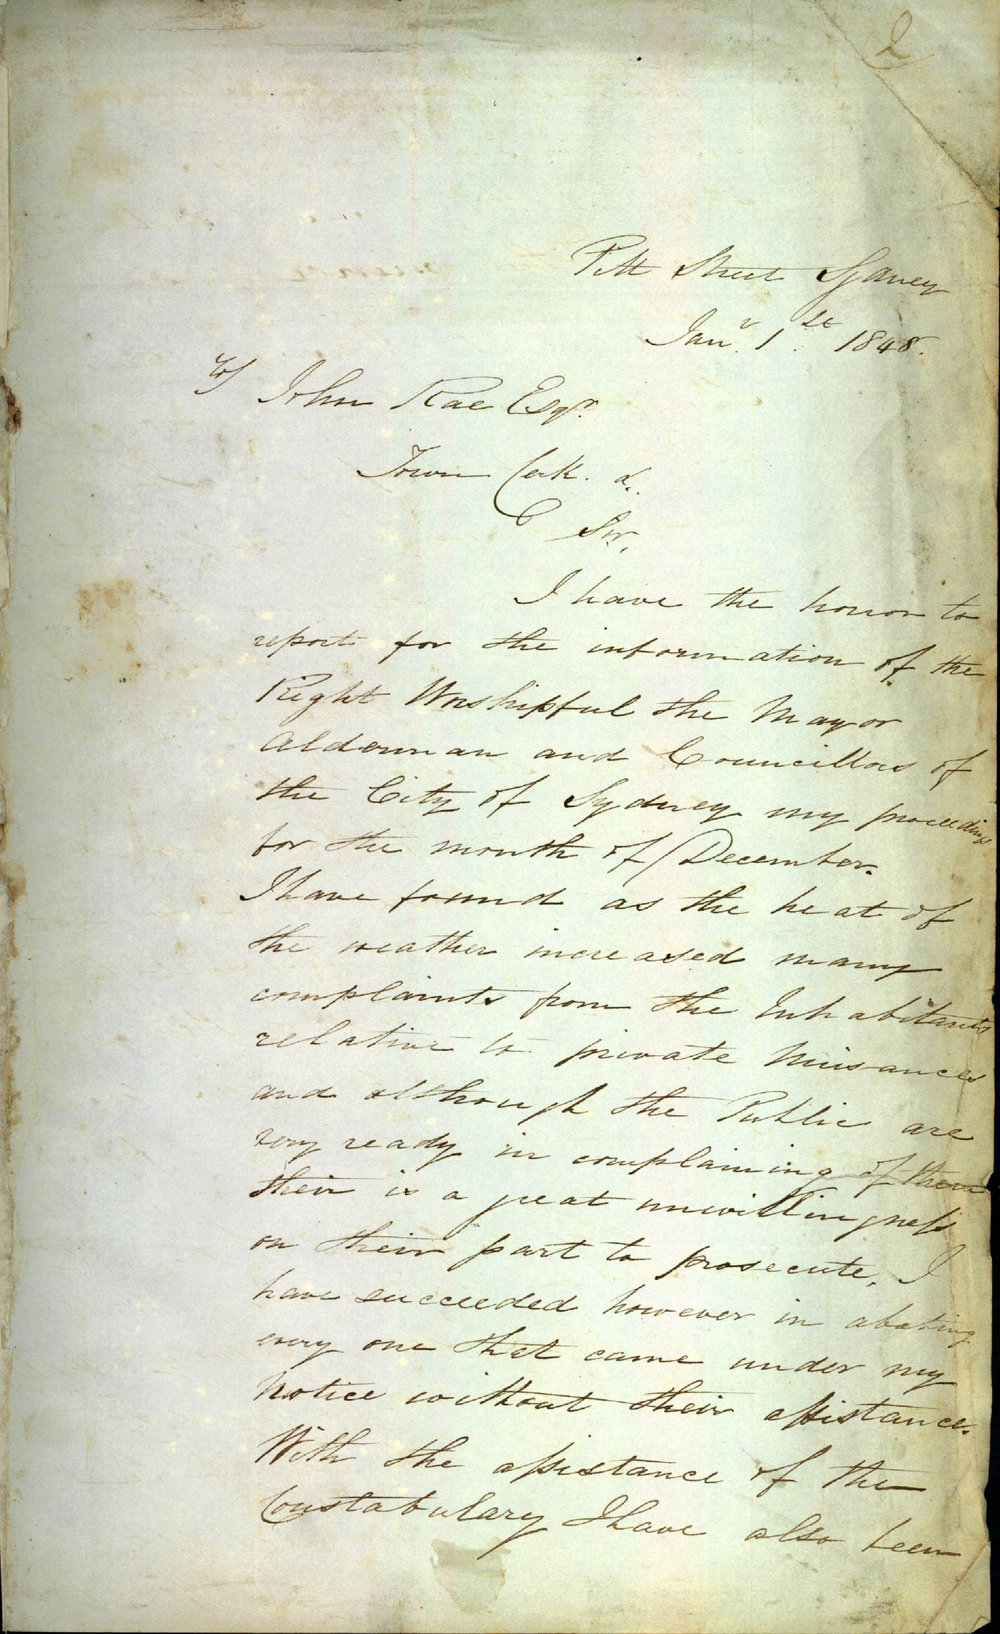 2
Pitt Street Sydney
Jany. 1st. 1848.
To John Rae Esqr.
Town Clerk. &c.
Sir,
I have the honor to
report for the information of the
Right Worshipful the Mayor
Alderman and Councillors of
the City of Sydney my proceedings
for the month of December.
I have found as the heat of
the weather increased many
complaints from the Inhabitants
relative to private Nuisances
and although the Public are
very ready in complaining of them
their is a great unwillingness
on their part to prosecute. I
have succeeded however in abating
every one that came under my
Notice without their assistance.
With the assistance of the
Constabulary I have also been